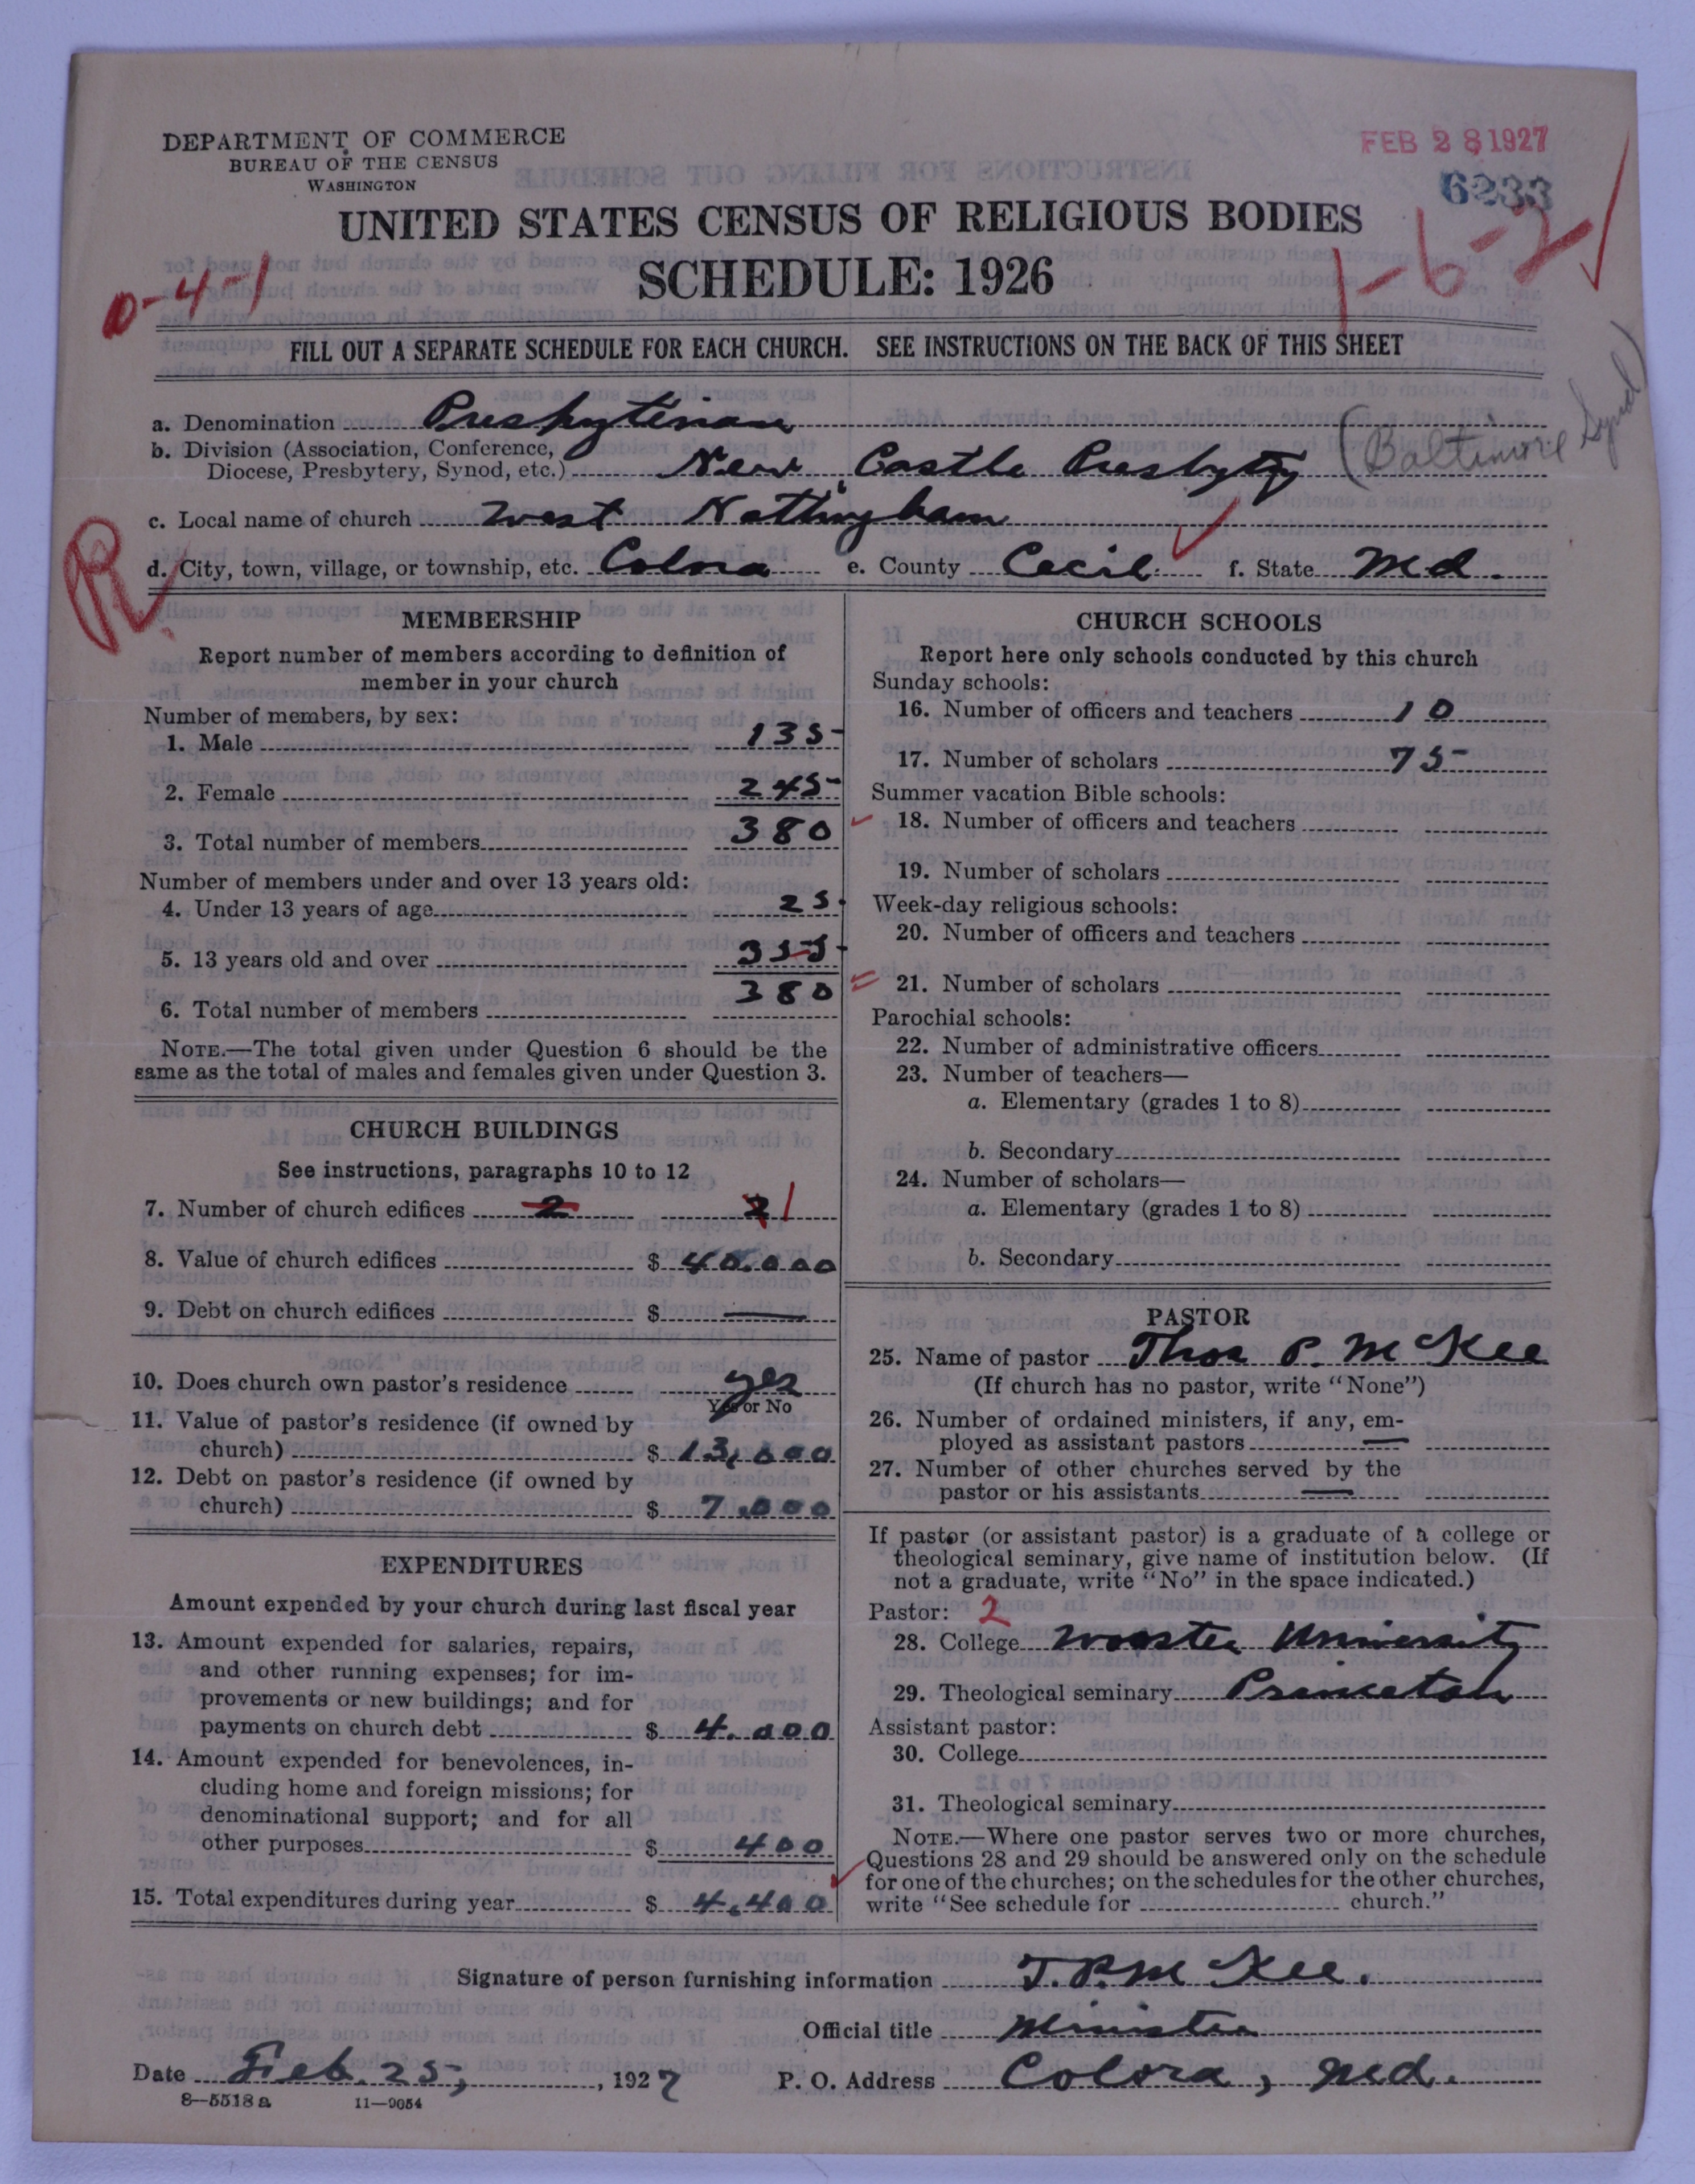 DEPARTMENT OF COMMERCE
BUREAU OF THE CENSUS
WASHINGTON
FEB 28 1927
6233
UNITED STATES CENSUS OF RELIGIOUS BODIES
SCHEDULE: 1926
0-4-1
1-6-2
FILL OUT A SEPARATE SCHEDULE FOR EACH CHURCH. SEE INSTRUCTIONS ON THE BACK OF THIS SHEET
a. Denomination Presbyterian
b. Division (Association, Conference,
Diocese, Presbytery, Synod, etc.) New Castle Presbytry (Baltimore Synod)
c. Local name of church West Nottingham
R
d. City, town, village, or township, etc. Colora e. County Cecil f. State Md.
MEMBERSHIP
Report number of members according to definition of
member in your church
Number of members, by sex:
1. Male 135
2. Female 245
3. Total number of members 380
Number of members under and over 13 years old:
4. Under 13 years of age 25
5. 13 years old and over 355
6. Total number of members 380
NOTE.—The total given under Question 6 should be the
same as the total of males and females given under Question 3.
CHURCH BUILDINGS
See instructions, paragraphs 10 to 12
7. Number of church edifices 2 2 1
8. Value of church edifices $ 40.000
9. Debt on church edifices $ —
10. Does church own pastor's residence yes
Yes or No
11. Value of pastor's residence (if owned by
church) $ 13,000
12. Debt on pastor's residence (if owned by
church) $ 7.000
EXPENDITURES
Amount expended by your church during last fiscal year
13. Amount expended for salaries, repairs,
and other running expenses; for im-
provements or new buildings; and for
payments on church debt $ 4.000
14. Amount expended for benevolences, in-
cluding home and foreign missions; for
denominational support; and for all
other purposes $ 400
15. Total expenditures during year $ 4,400
CHURCH SCHOOLS
Report here only schools conducted by this church
Sunday schools:
16. Number of officers and teachers 10
17. Number of scholars 75
Summer vacation Bible schools:
18. Number of officers and teachers
19. Number of scholars
Week-day religious schools:
20. Number of officers and teachers
21. Number of scholars
Parochial schools:
22. Number of administrative officers
23. Number of teachers—
a. Elementary (grades 1 to 8)
b. Secondary
24. Number of scholars—
a. Elementary (grades 1 to 8)
b. Secondary
PASTOR
25. Name of pastor Thos P. McKee
(If church has no pastor, write "None")
26. Number of ordained ministers, if any, em-
ployed as assistant pastors —
27. Number of other churches served by the
pastor or his assistants —
If pastor (or assistant pastor) is a graduate of a college or
theological seminary, give name of institution below. (If
not a graduate, write "No" in the space indicated.)
Pastor: 2
28. College Wooster University
29. Theological seminary Princeton
Assistant pastor:
30. College
31. Theological seminary
NOTE.—Where one pastor serves two or more churches,
Questions 28 and 29 should be answered only on the schedule
for one of the churches; on the schedules for the other churches,
write "See schedule for church."
Signature of person furnishing information T. P. McKee.
Official title Minister
Date Feb. 25, , 1927 P. O. Address Colora, Md.
8—5518 a 11—9054